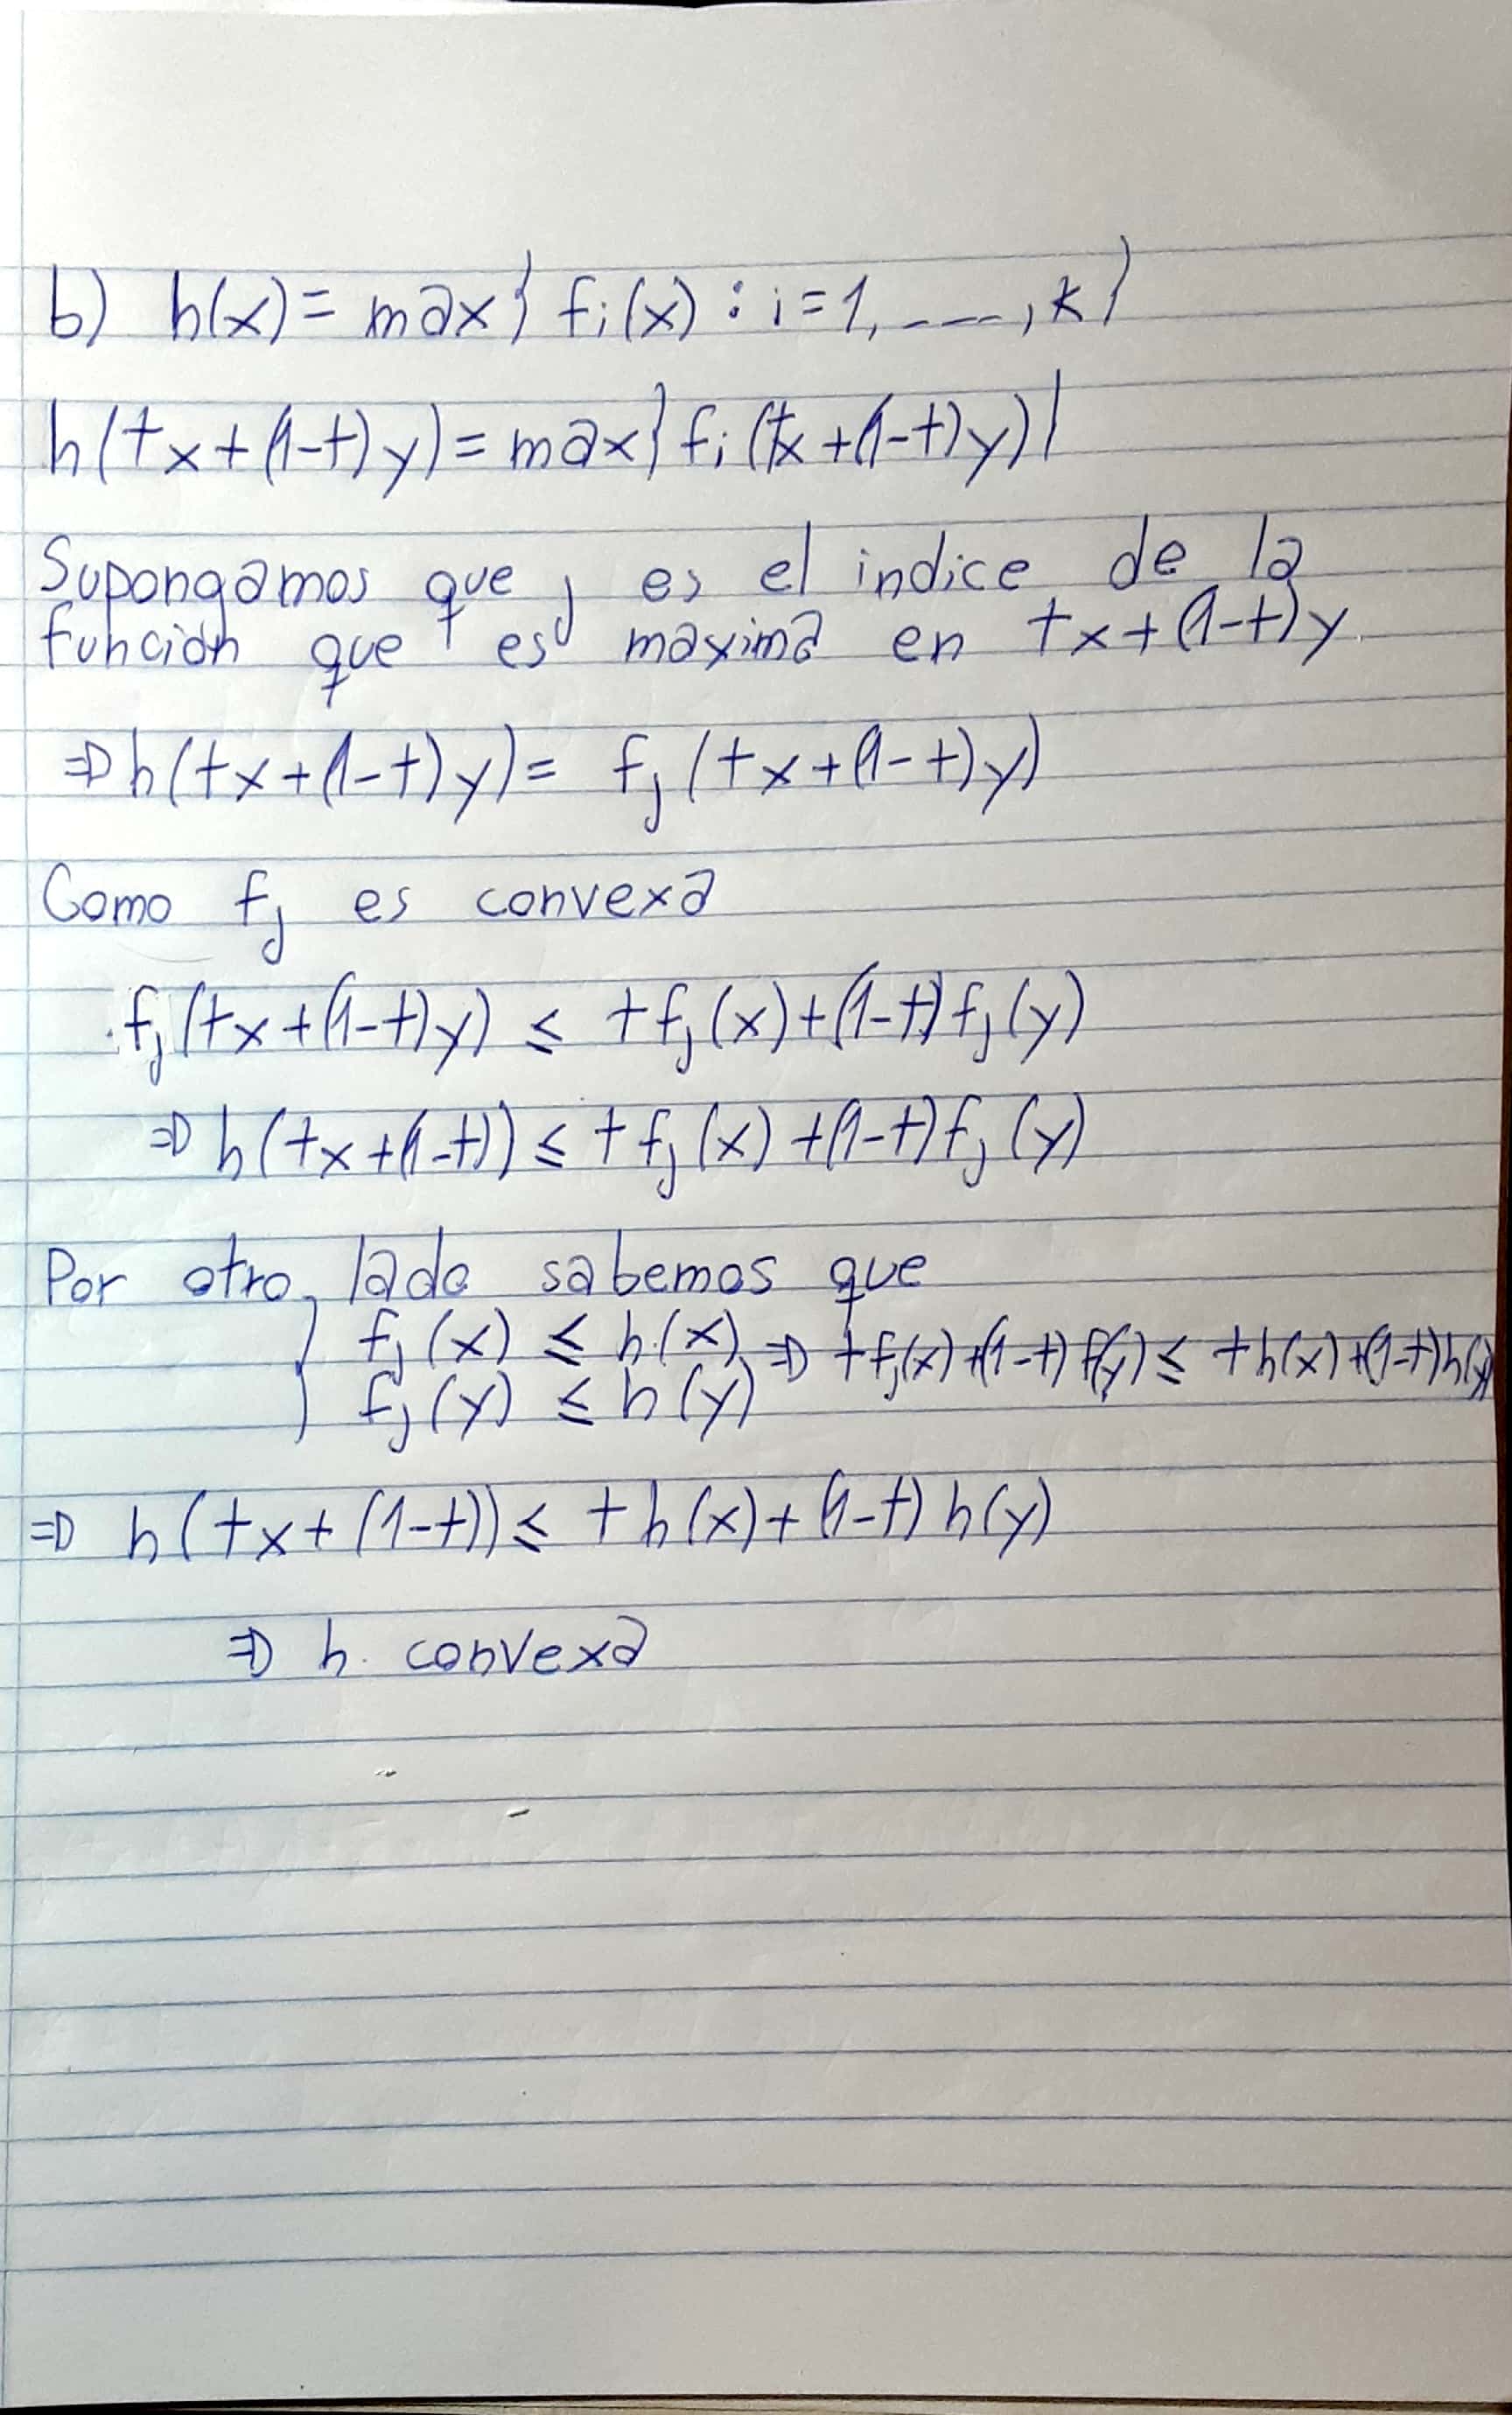 b) h(x) = max{ fi(x) : i=1, ----, k}
h(tx+(1-t)y) = max{ fi(tx+(1-t)y)}
Supongamos que j es el indice de la
función que es maxima en tx+(1-t)y.
⇒ h(tx+(1-t)y) = fj(tx+(1-t)y)
Como fj es convexa
fj(tx+(1-t)y) ≤ tfj(x)+(1-t)fj(y)
⇒ h(tx+(1-t)) ≤ tfj(x)+(1-t)fj(y)
Por otro lado sabemos que
{ fj(x) ≤ h(x) ⇒ tfj(x)+(1-t)f(y) ≤ th(x)+(1-t)h(y)
fj(y) ≤ h(y)
⇒ h(tx+(1-t)) ≤ th(x)+(1-t)h(y)
⇒ h convexa